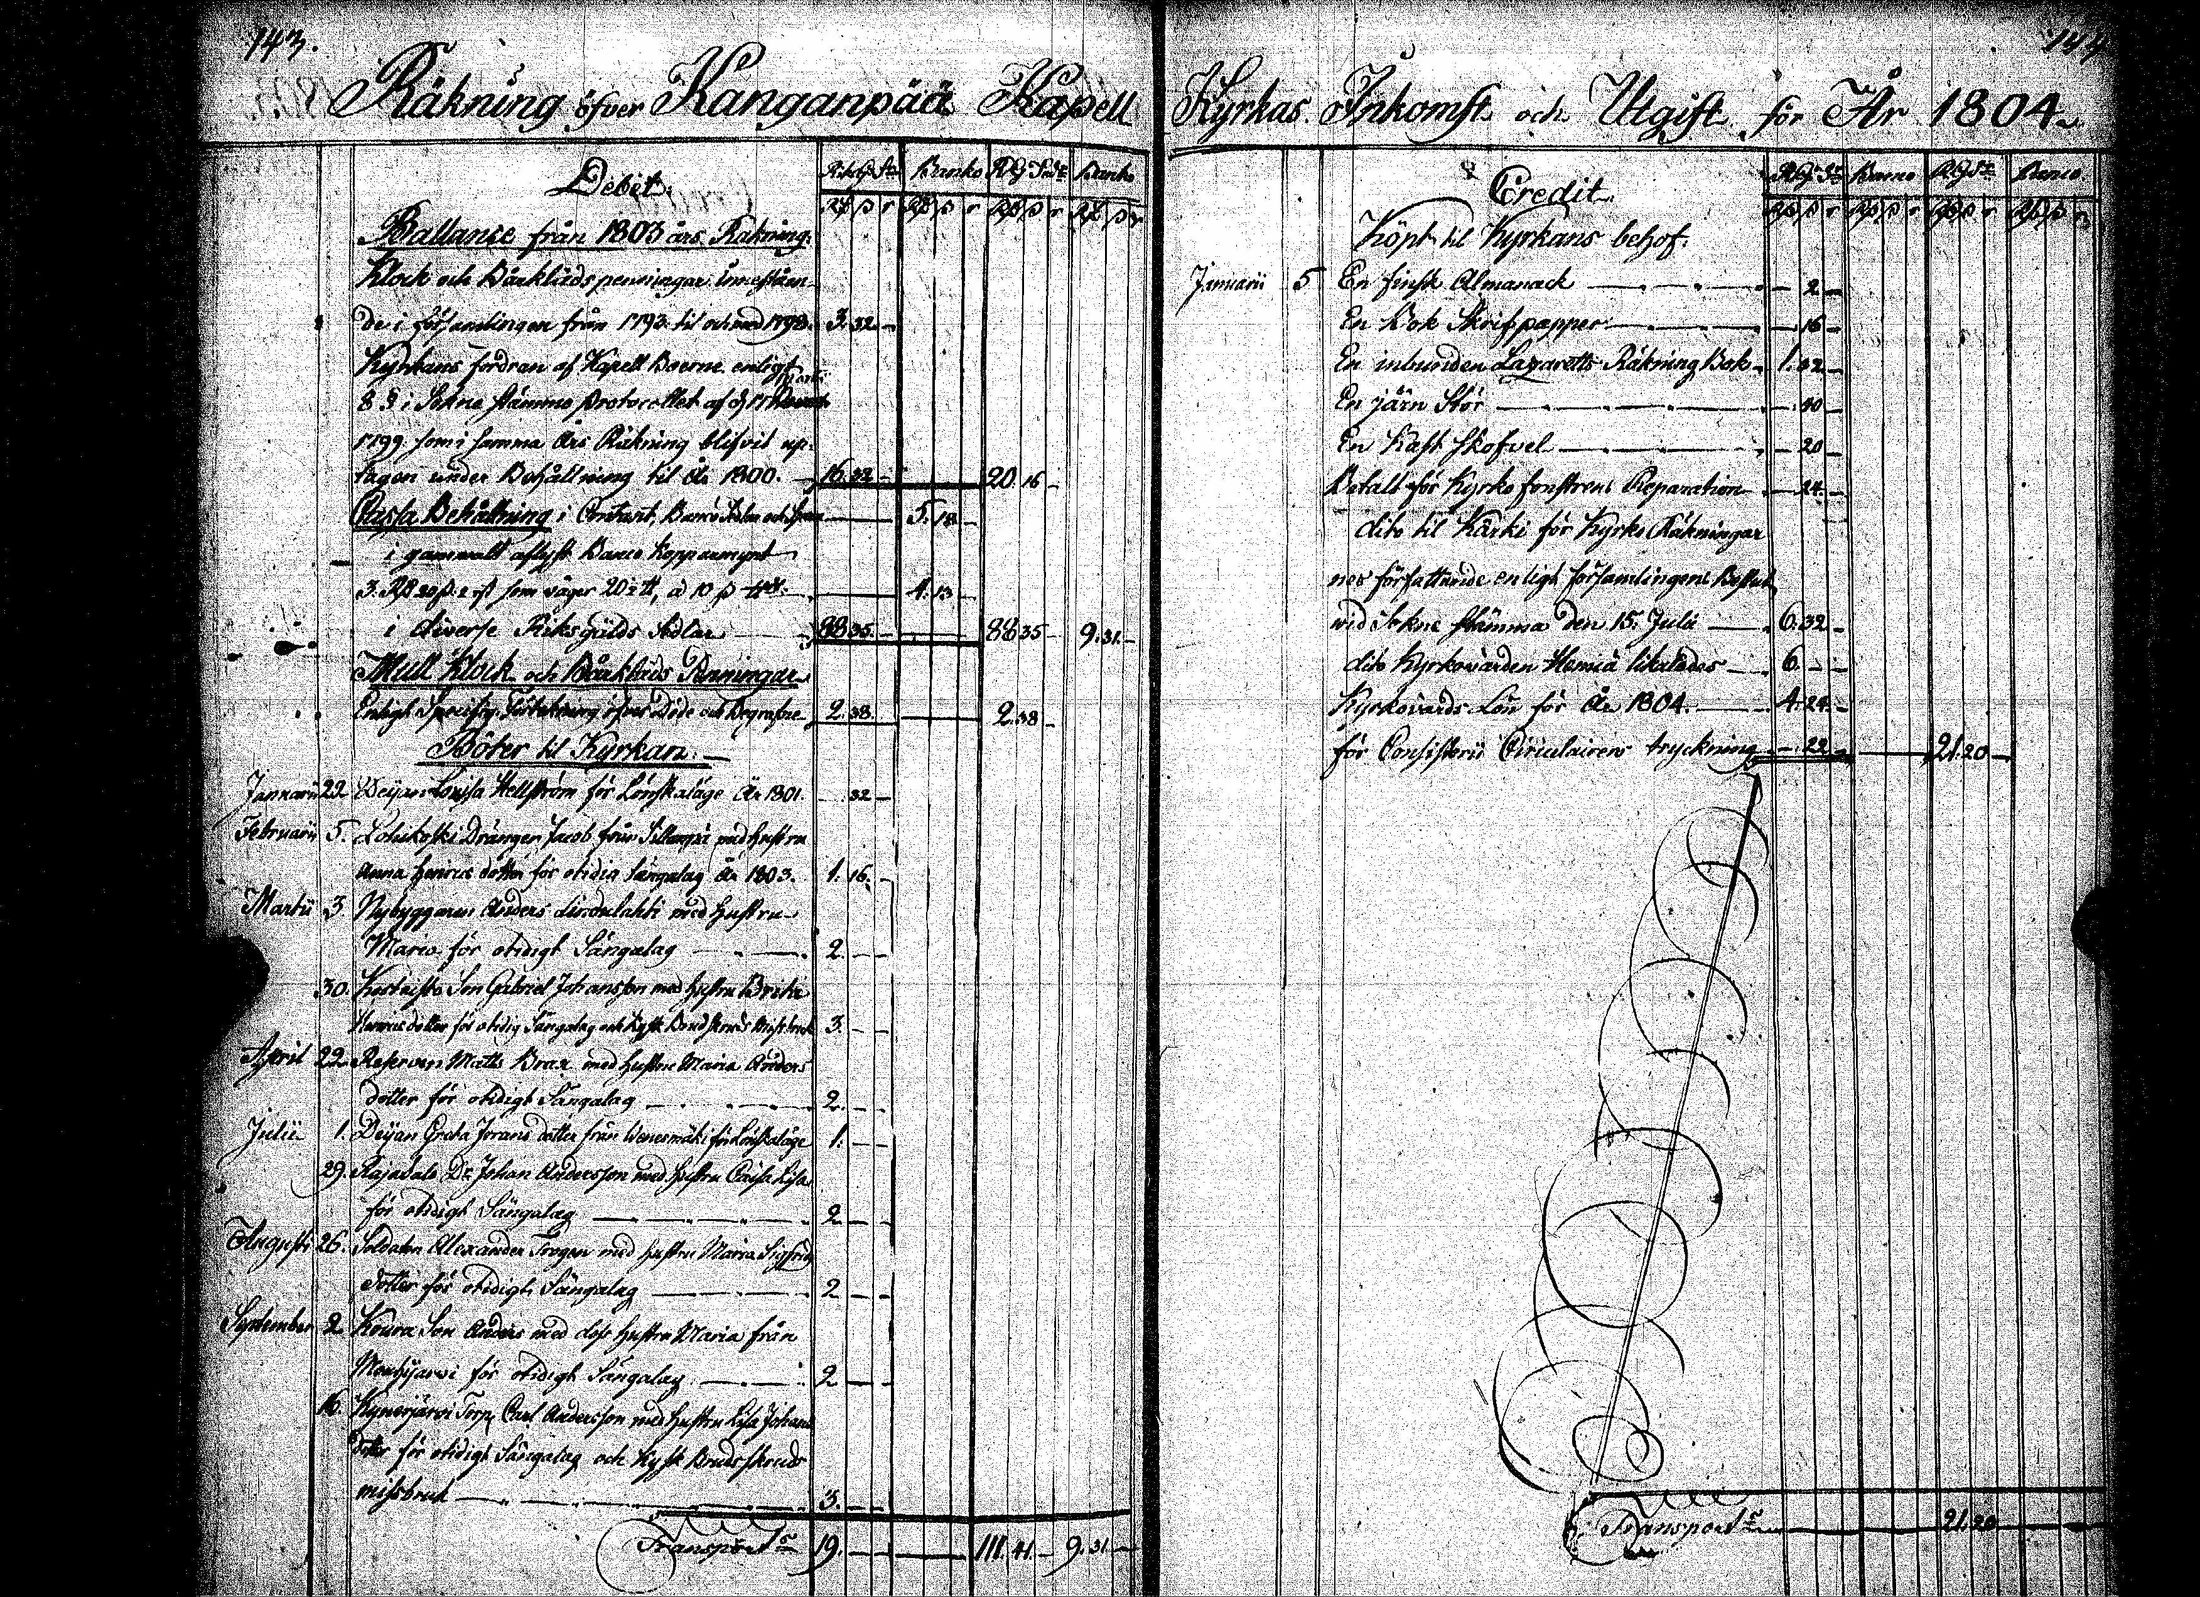 143.
Räkning öfver Kanganpää Kapell
Debet.
Rikg:s S:r Banko RG Sedl:r Banko
Rß ß r Rß ß r Rß ß r Rß ß r
Ballance från 1803 års Räkning:
Klock och Bårklädspenningar innestån-
de i församlingen från 1793 til och med 1798. 3. 32. -
Kyrkans fordran af Kapell Boerne enligt
8 § i Sokne stämmo Protocollet af d. 17
1799 som i samma Års Räkning blifvit up-
tagen under Behållning til År 1800. - 16. 32 - 20. 16 -
Cassa Behållning i Contant, Banco Sedlar och 5. 18 -
i gammalt aflyst Banco Kopparmynt
3. Rß 20 ß. 2 rst som väger 20 ½ ℔, a 10 ß 4. 13
i diverse Riksgälds Sedlar 88 35. 88 35 - 9. 31. -
Mull Klock och Bårkläds Penningar
Enligt Specifiq Förtekning öfver Döde och Begrafne 2. 38. 2. 38 -
Böter til Kyrkan. -
Januarii 22 Deijan Lovisa Hellström för Lönskaläge År 1801. 32 -
Februarii 5. Drängen Jacob från med hustru
Anna Henrics dotter för otidig Sängalag År 1803. 1. 16. -
Martii 3 Nybyggaren Anders med hustru
Maria för otidigt Sängalag 2. - -
30. Son Gabriel Johansson med hustru Brita
Henrics dotter för otidig Sängalag och Kysk Brud skruds missbruk 3. - -
April 22. Reserven Matts Brax med hustru Maria Anders
dotter för otidigt Sängalag 2. - -
Julii 1. Deijan Greta Jörans dotter från Venesmäki för Lönskaläge 1. - -
29. Rajasalo Dr. Johan Andersson med hustru Caisa Lisa
för otidigt Sängalag 2 - -
Augusti 26. Soldaten Alexander Trogen med hustru Maria Sigfrids
dotter för otidigt Sängalag 2 - -
September 2 Koura Son Anders med dess hustru Maria från
för otidigt Sängalag 2 - -
16. Kynerjärvi Torp. Carl Andersson med hustru Lisa Johans
dotter för otidigt Sängalag och Kysk Brudskruds
missbruk 3. - -
Transport 19. - - 111. 41. - 9. 31. -
144
Kyrkas Inkomst och Utgift för År 1804
Credit
RG S:r Banco RG S:r Banco
Rß ß r Rß ß r Rß ß r Rß ß r
Köpt til Kyrkans behof.
Januarii 5 En finsk Almanack - 2 -
En Bok Skrifpapper - 16 -
En inbunden Lazaretts Räkning Bok 1. 32 -
En järn Stör - 40 -
En kast skofvel - 20 -
Betalt för Kyrko fönstrens Reparation - 24. -
dito til Karki för Kyrko Räkningar
nes författande enligt församlingens Beslut
wid Sokne stämma den 15. Julii 6. 32 -
dito Kyrkovärden likaledes 6. - -
Kyrkovärds Lön för År 1804. 4. 24. -
för Consistorii Circulairens tryckning - 22 - 21. 20 -
Transport 21. 20